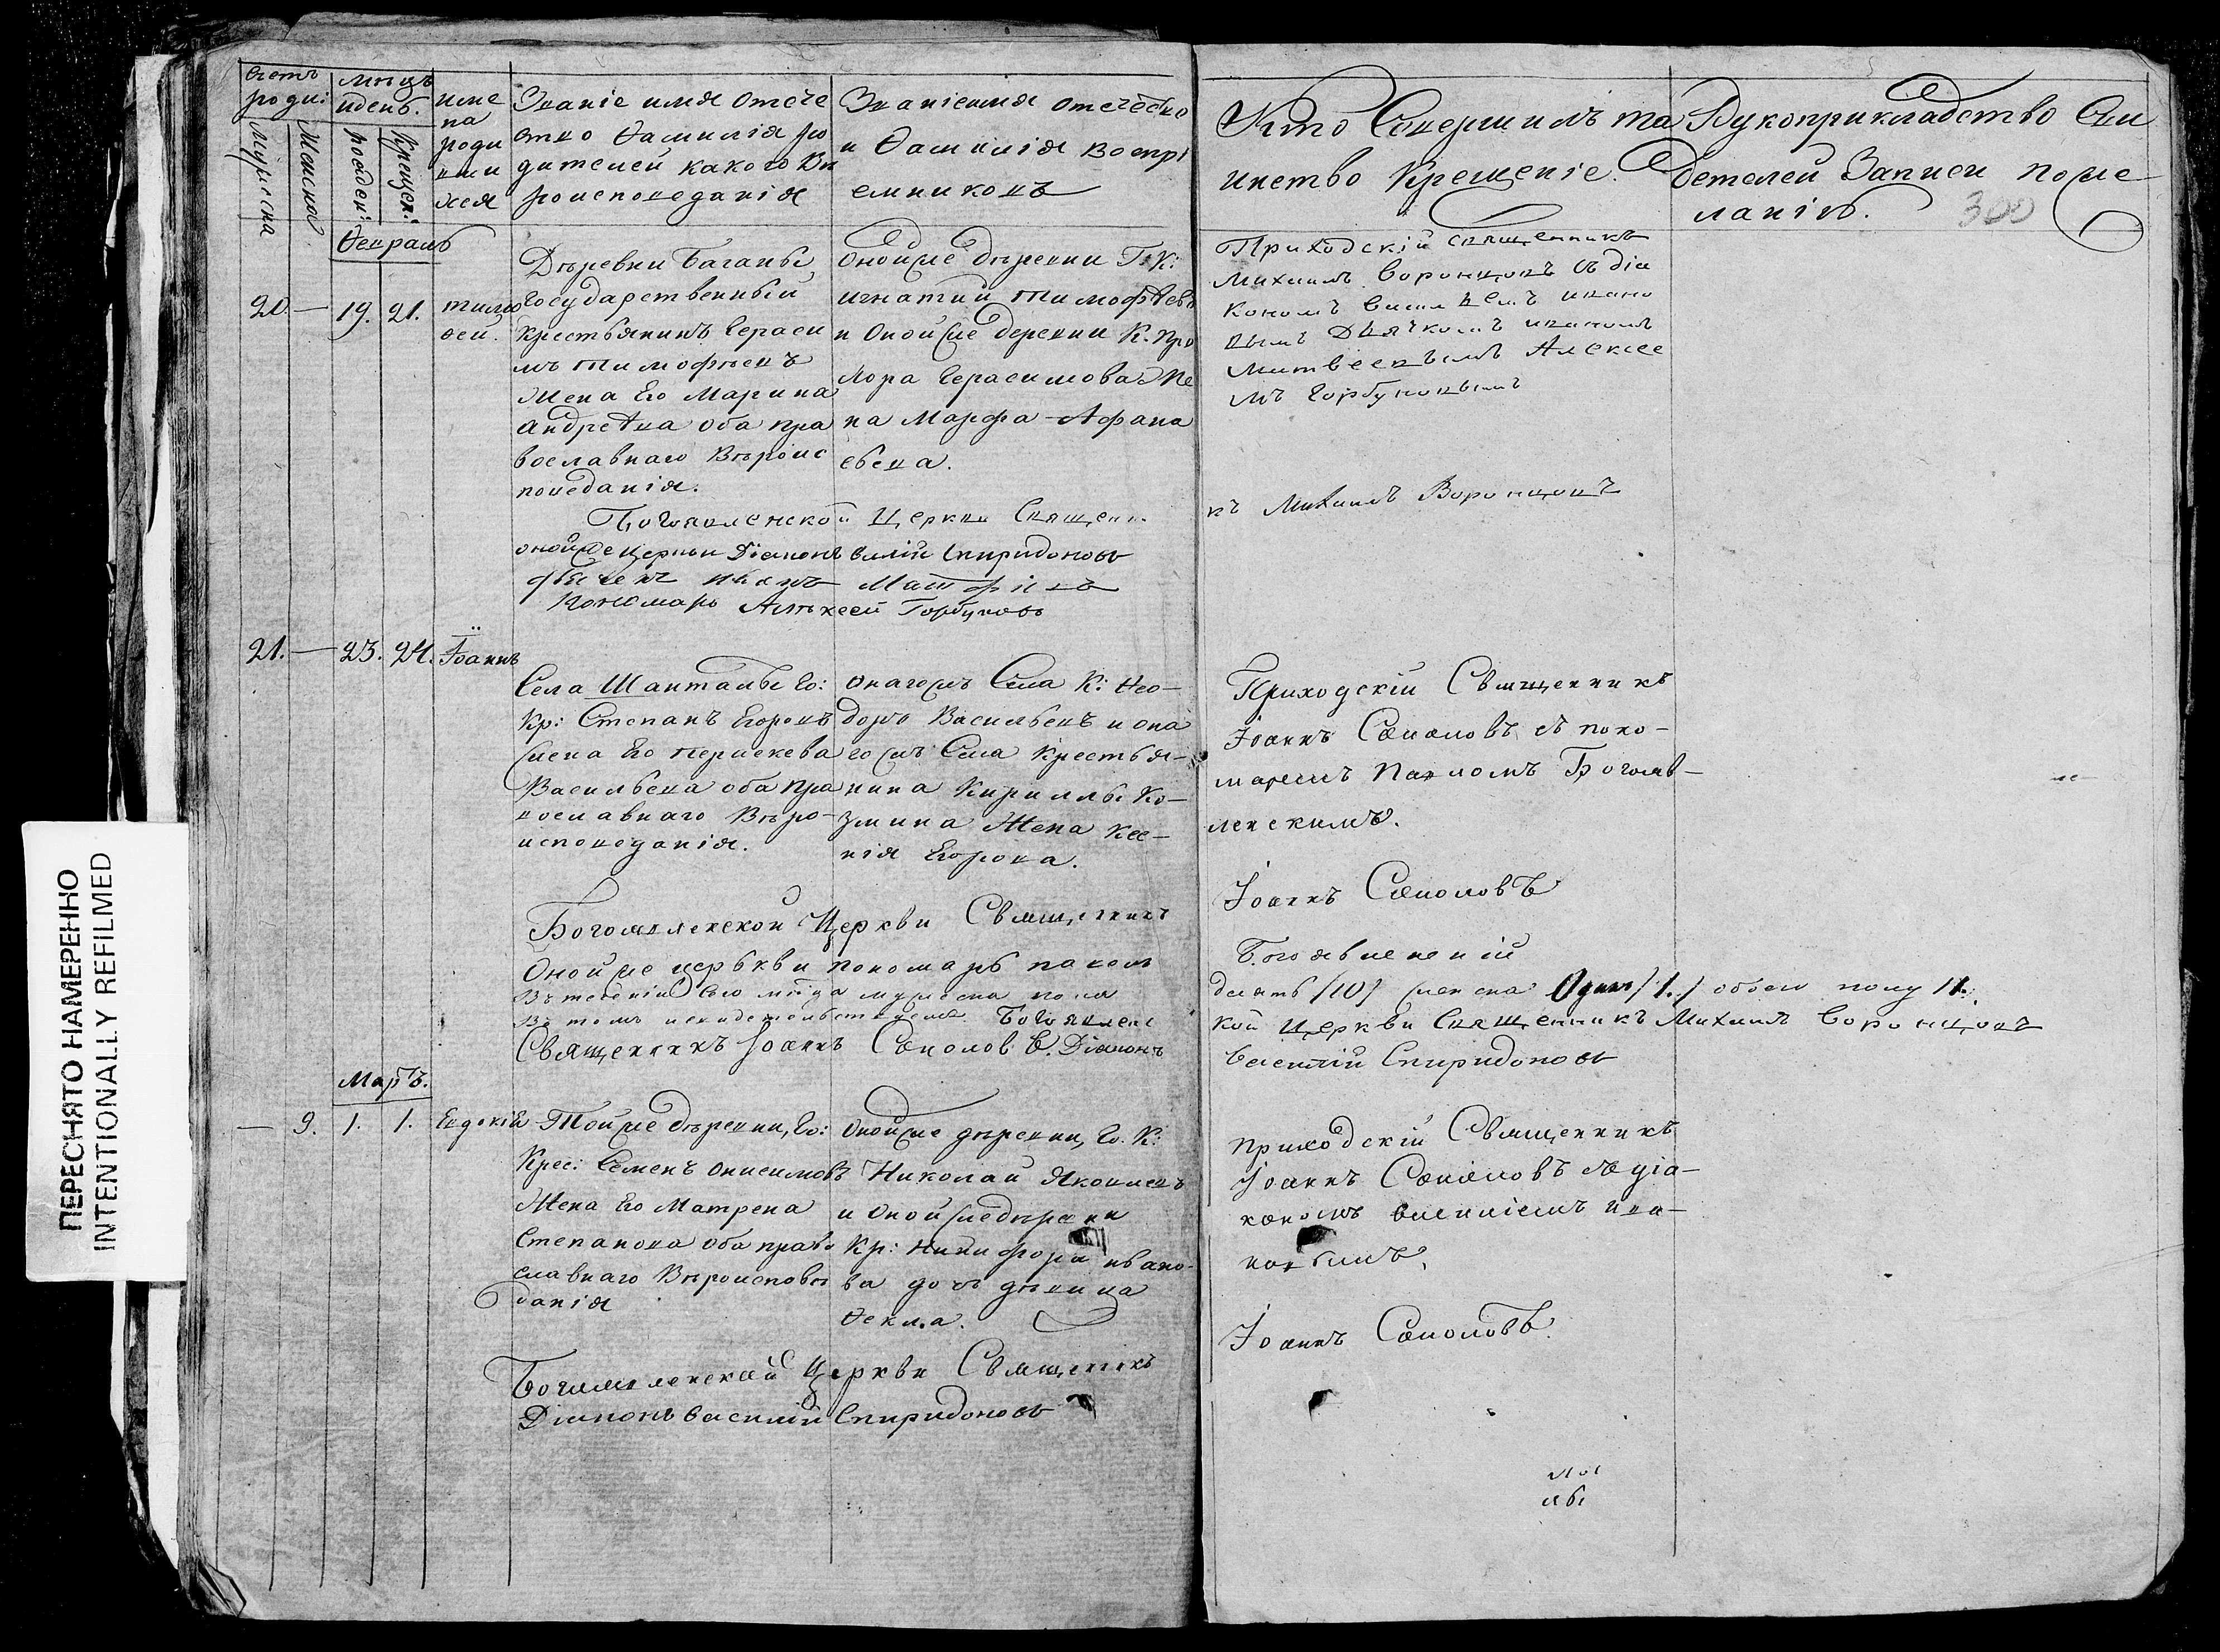 ПЕРЕСНЯТО НАМЕРЕННО
INTENTIONALLY REFILMED
Счетъ роди:
Мужеска
Женска
мѣцъ и день.
рожден:
Крещен:
имена родившихся
Званіе имя отечество Фамилія родителей какого Вѣроисповеданія
Званіе имя отечество и Фамилія воспріемниковъ
Кто Совершилъ таинство Крещеніе.
Рукоприкладство Свидетелей Записи по желанію.
300
Февраль
20. — 19. 21. тимофей.
Дѣревни Баганы
Государственный
крестьянинъ Гераси
мъ тимофѣевъ
Жена Его Марина
андреева оба пра
вославнаго Вѣроис
поведанія.
Оной же дѣревни Г: К:
игнатий тимофѣевъ
и Оной же деревни К. Про
хора Герасимова Же
на Марфа Афана
сьева.
Приходскій священникъ
михаилъ Воронцовъ съ діа
кономъ василіемъ ивано
вымъ Дьячкомъ иваномъ
матвеевымъ Алексее
мъ Горбуновымъ
Богоявленской Церкви Священни
къ Михаилъ Воронцовъ
оной же церкви Діаконъ василій Спиридоновъ
дьячекъ иванъ Матфіевъ
Пономарь Алѣксей Горбуновъ
21. — 23. 24. Іоаннъ
Села Шанталы Го:
Кр: Степанъ Егоровъ
жена Его перискева
Васильева оба пра
вославнаго Вѣро-
исповеданія.
онагожъ Села К: Фео-
доръ Васильевъ и она
гожъ Села Крестья-
нина Кириллы Ко-
змина Жена Ксе-
нія Егорова.
Приходскій Священникъ
Іоаннъ Соколовъ съ поно-
маремъ Павломъ Богояв-
ленскимъ.
Богоявленской Церкви Священникъ
Іоаннъ Соколовъ
Оной же церькви пономарь павелъ
Богоявленскій
Въ теченіи сего мѣца мужеска пола
десять /10/ женска Одинъ /1./ обоего полу 11.
Въ томъ и свидетельствуемъ Богоявленс
кой Церкви Священникъ Михаилъ Воронцовъ
Священникъ Іоаннъ Соколовъ. Діаконъ
Василій Спиридоновъ
Мартъ.
— 9. 1. 1. Евдокія
Той же дѣревни, Го:
Крес: Семенъ онисимовъ
Жена Его Матрена
Степанова Оба право
славнаго Вѣроисповѣ
данія
Оной же дѣревни, Го. К:
Николай Яковлевъ
и Оной же дѣревни
Кр: Никифора ивано-
ва дочь дѣвица
Фекла.
приходскій Священникъ
Іоаннъ Соколовъ съ діа-
кономъ василіемъ ива-
новымъ.
Богоявленской Церкви Священникъ
Іоаннъ Соколовъ.
Діаконъ василій Спиридоновъ